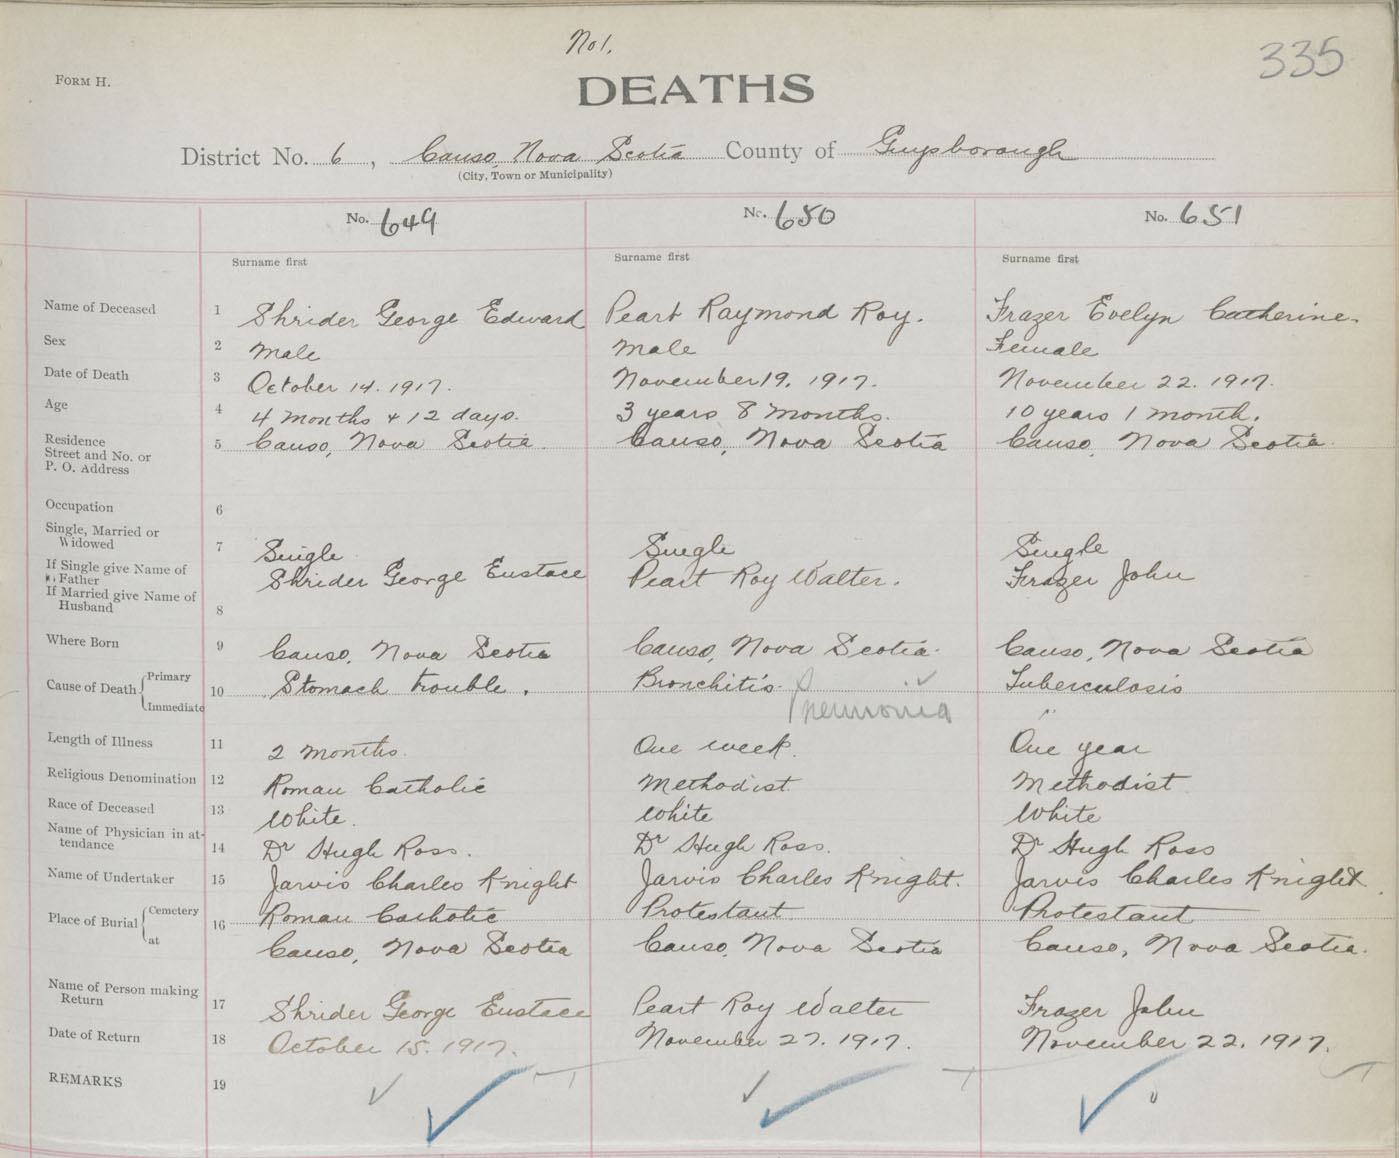 No 1.
335
FORM H.
DEATHS
District No. 6, Canso, Nova Scotia County of Guysborough
(City, Town or Municipality)
No. 649 No. 650 No. 651
Surname first Surname first Surname first
Name of Deceased 1 Shrider George Edward Peart Raymond Roy. Frazer Evelyn Catherine.
Sex 2 Male Male Female
Date of Death 3 October 14. 1917. November 19. 1917. November 22. 1917.
Age 4 4 months + 12 days. 3 years 8 months. 10 years 1 month.
Residence Street and No. or P. O. Address 5 Canso, Nova Scotia. Canso, Nova Scotia Canso, Nova Scotia.
Occupation 6
Single, Married or Widowed 7 Single Single Single
If Single give Name of Father Shrider George Eustace Peart Roy Walter. Frazer John
If Married give Name of Husband 8
Where Born 9 Canso, Nova Scotia Canso, Nova Scotia. Canso, Nova Scotia
Cause of Death Primary 10 Stomach trouble. Bronchitis. Tuberculosis
Immediate Pneumonia "
Length of Illness 11 2 months. One week. One year
Religious Denomination 12 Roman Catholic Methodist. Methodist
Race of Deceased 13 White. White White
Name of Physician in attendance 14 Dr Hugh Ross. Dr Hugh Ross. Dr Hugh Ross
Name of Undertaker 15 Jarvis Charles Knight Jarvis Charles Knight. Jarvis Charles Knight.
Place of Burial Cemetery 16 Roman Catholic Protestant Protestant
at Canso, Nova Scotia Canso, Nova Scotia Canso, Nova Scotia.
Name of Person making Return 17 Shrider George Eustace Peart Roy Walter Frazer John
Date of Return 18 October 15. 1917. November 27. 1917. November 22. 1917.
REMARKS 19